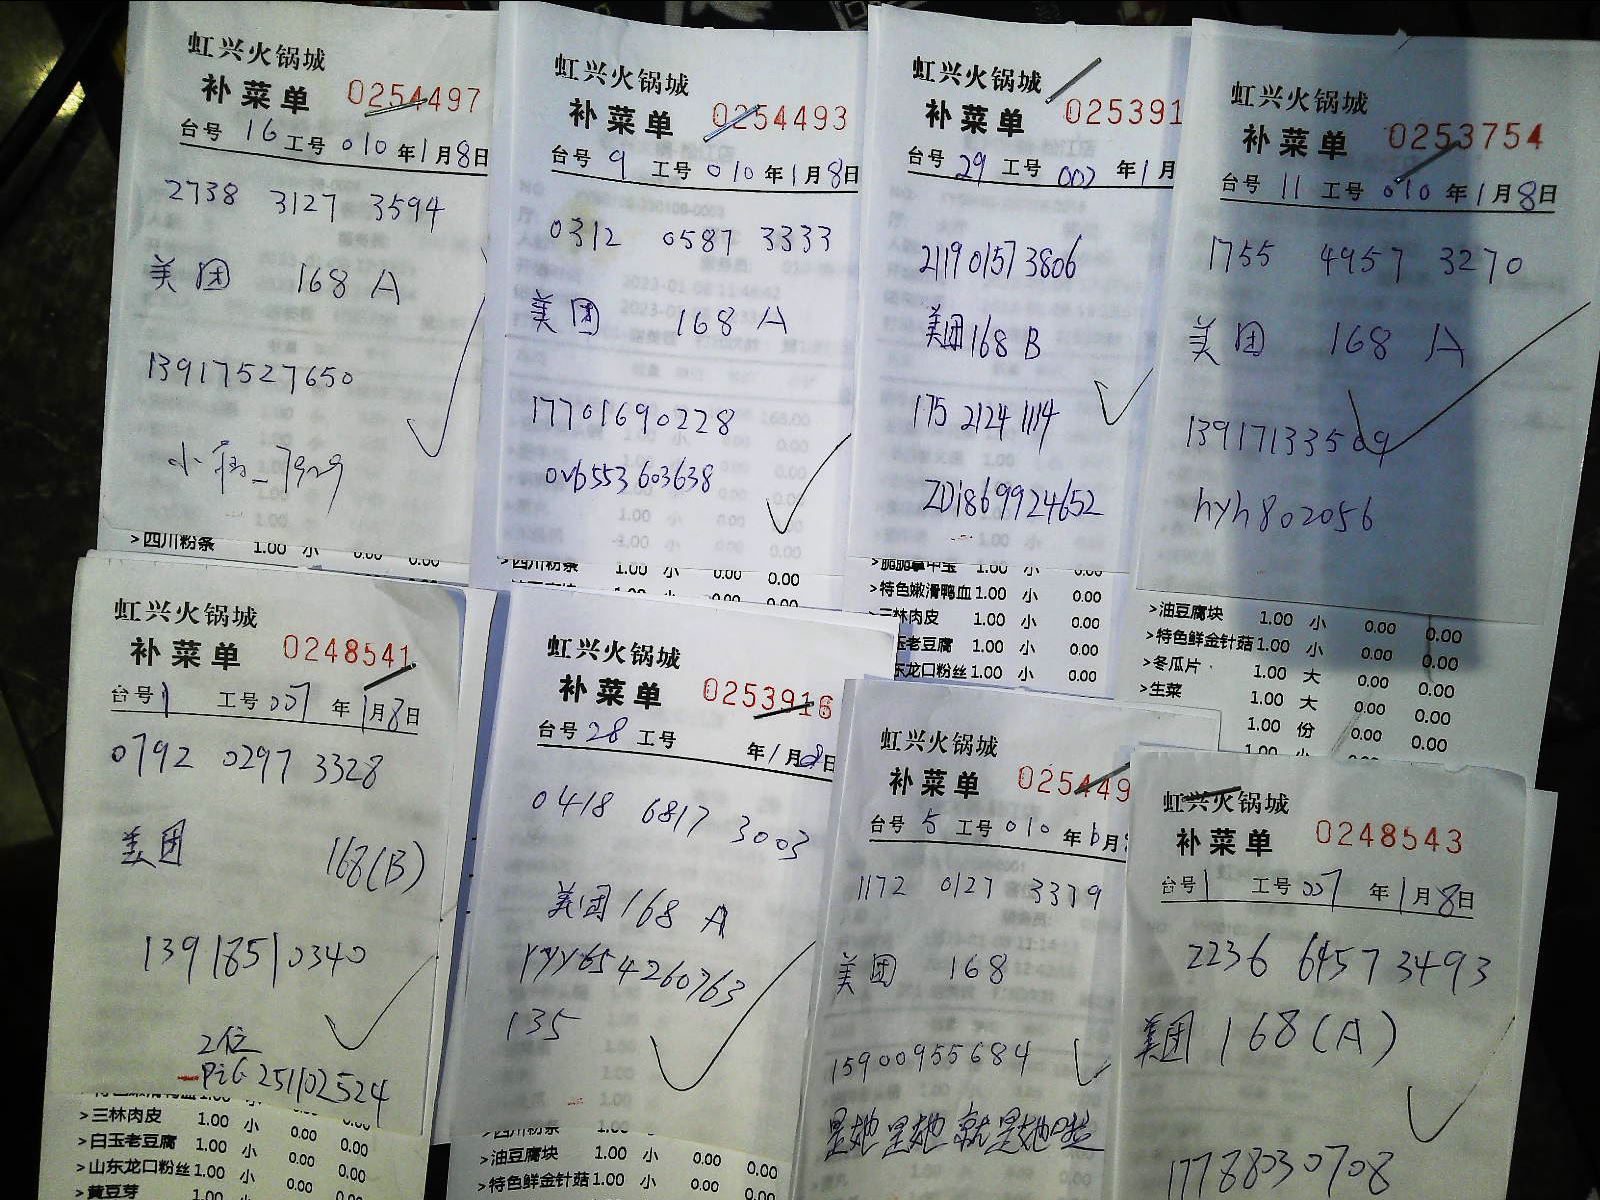 虹兴火锅城
补菜单 0254497
台号 16 工号 010 年1月8日
2738 3127 3594
美团 168 A
13917527650
>四川粉条 1.00 小 0.00 0.00
虹兴火锅城
补菜单 0254493
台号 9 工号 010 年1月8日
0312 0587 3333
美团 168 A
17701690228
>四川粉条 1.00 小 0.00 0.00
虹兴火锅城
补菜单 025391
台号 29 工号 002 年1月
211901573806
美团168 B
175 2124 1114
ZDi869924652
>特色嫩滑鸭血 1.00 小 0.00 0.00
三林肉皮 1.00 小 0.00 0.00
玉老豆腐 1.00 小 0.00 0.00
东龙口粉丝 1.00 小 0.00 0.00
虹兴火锅城
补菜单 0253754
台号 11 工号 010 年1月8日
1755 4957 3270
美团 168 A
13917133509
hyh802056
>油豆腐块 1.00 小 0.00 0.00
>特色鲜金针菇 1.00 小 0.00 0.00
>冬瓜片 1.00 大 0.00 0.00
>生菜 1.00 大 0.00 0.00
1.00 份 0.00 0.00
虹兴火锅城
补菜单 0248541
台号 1 工号 007 年1月8日
0792 0297 3328
美团 168(B)
13918510340
2位
PiG251102524
>三林肉皮 1.00 小 0.00 0.00
>白玉老豆腐 1.00 小 0.00 0.00
>山东龙口粉丝 1.00 小 0.00 0.00
>黄豆芽 1.00 小 0.00 0.00
虹兴火锅城
补菜单 0253916
台号 28 工号 年1月8日
0418 6817 3003
美团168 A
yyy654260763
135
>油豆腐块 1.00 小 0.00 0.00
>特色鲜金针菇 1.00 小 0.00 0.00
虹兴火锅城
补菜单 025449
台号 5 工号 010 年6月
1172 0127 3379
美团 168
15900955684
是她是她就是她啦
虹兴火锅城
补菜单 0248543
台号 1 工号 007 年1月8日
2236 6457 3493
美团 168(A)
17788030708